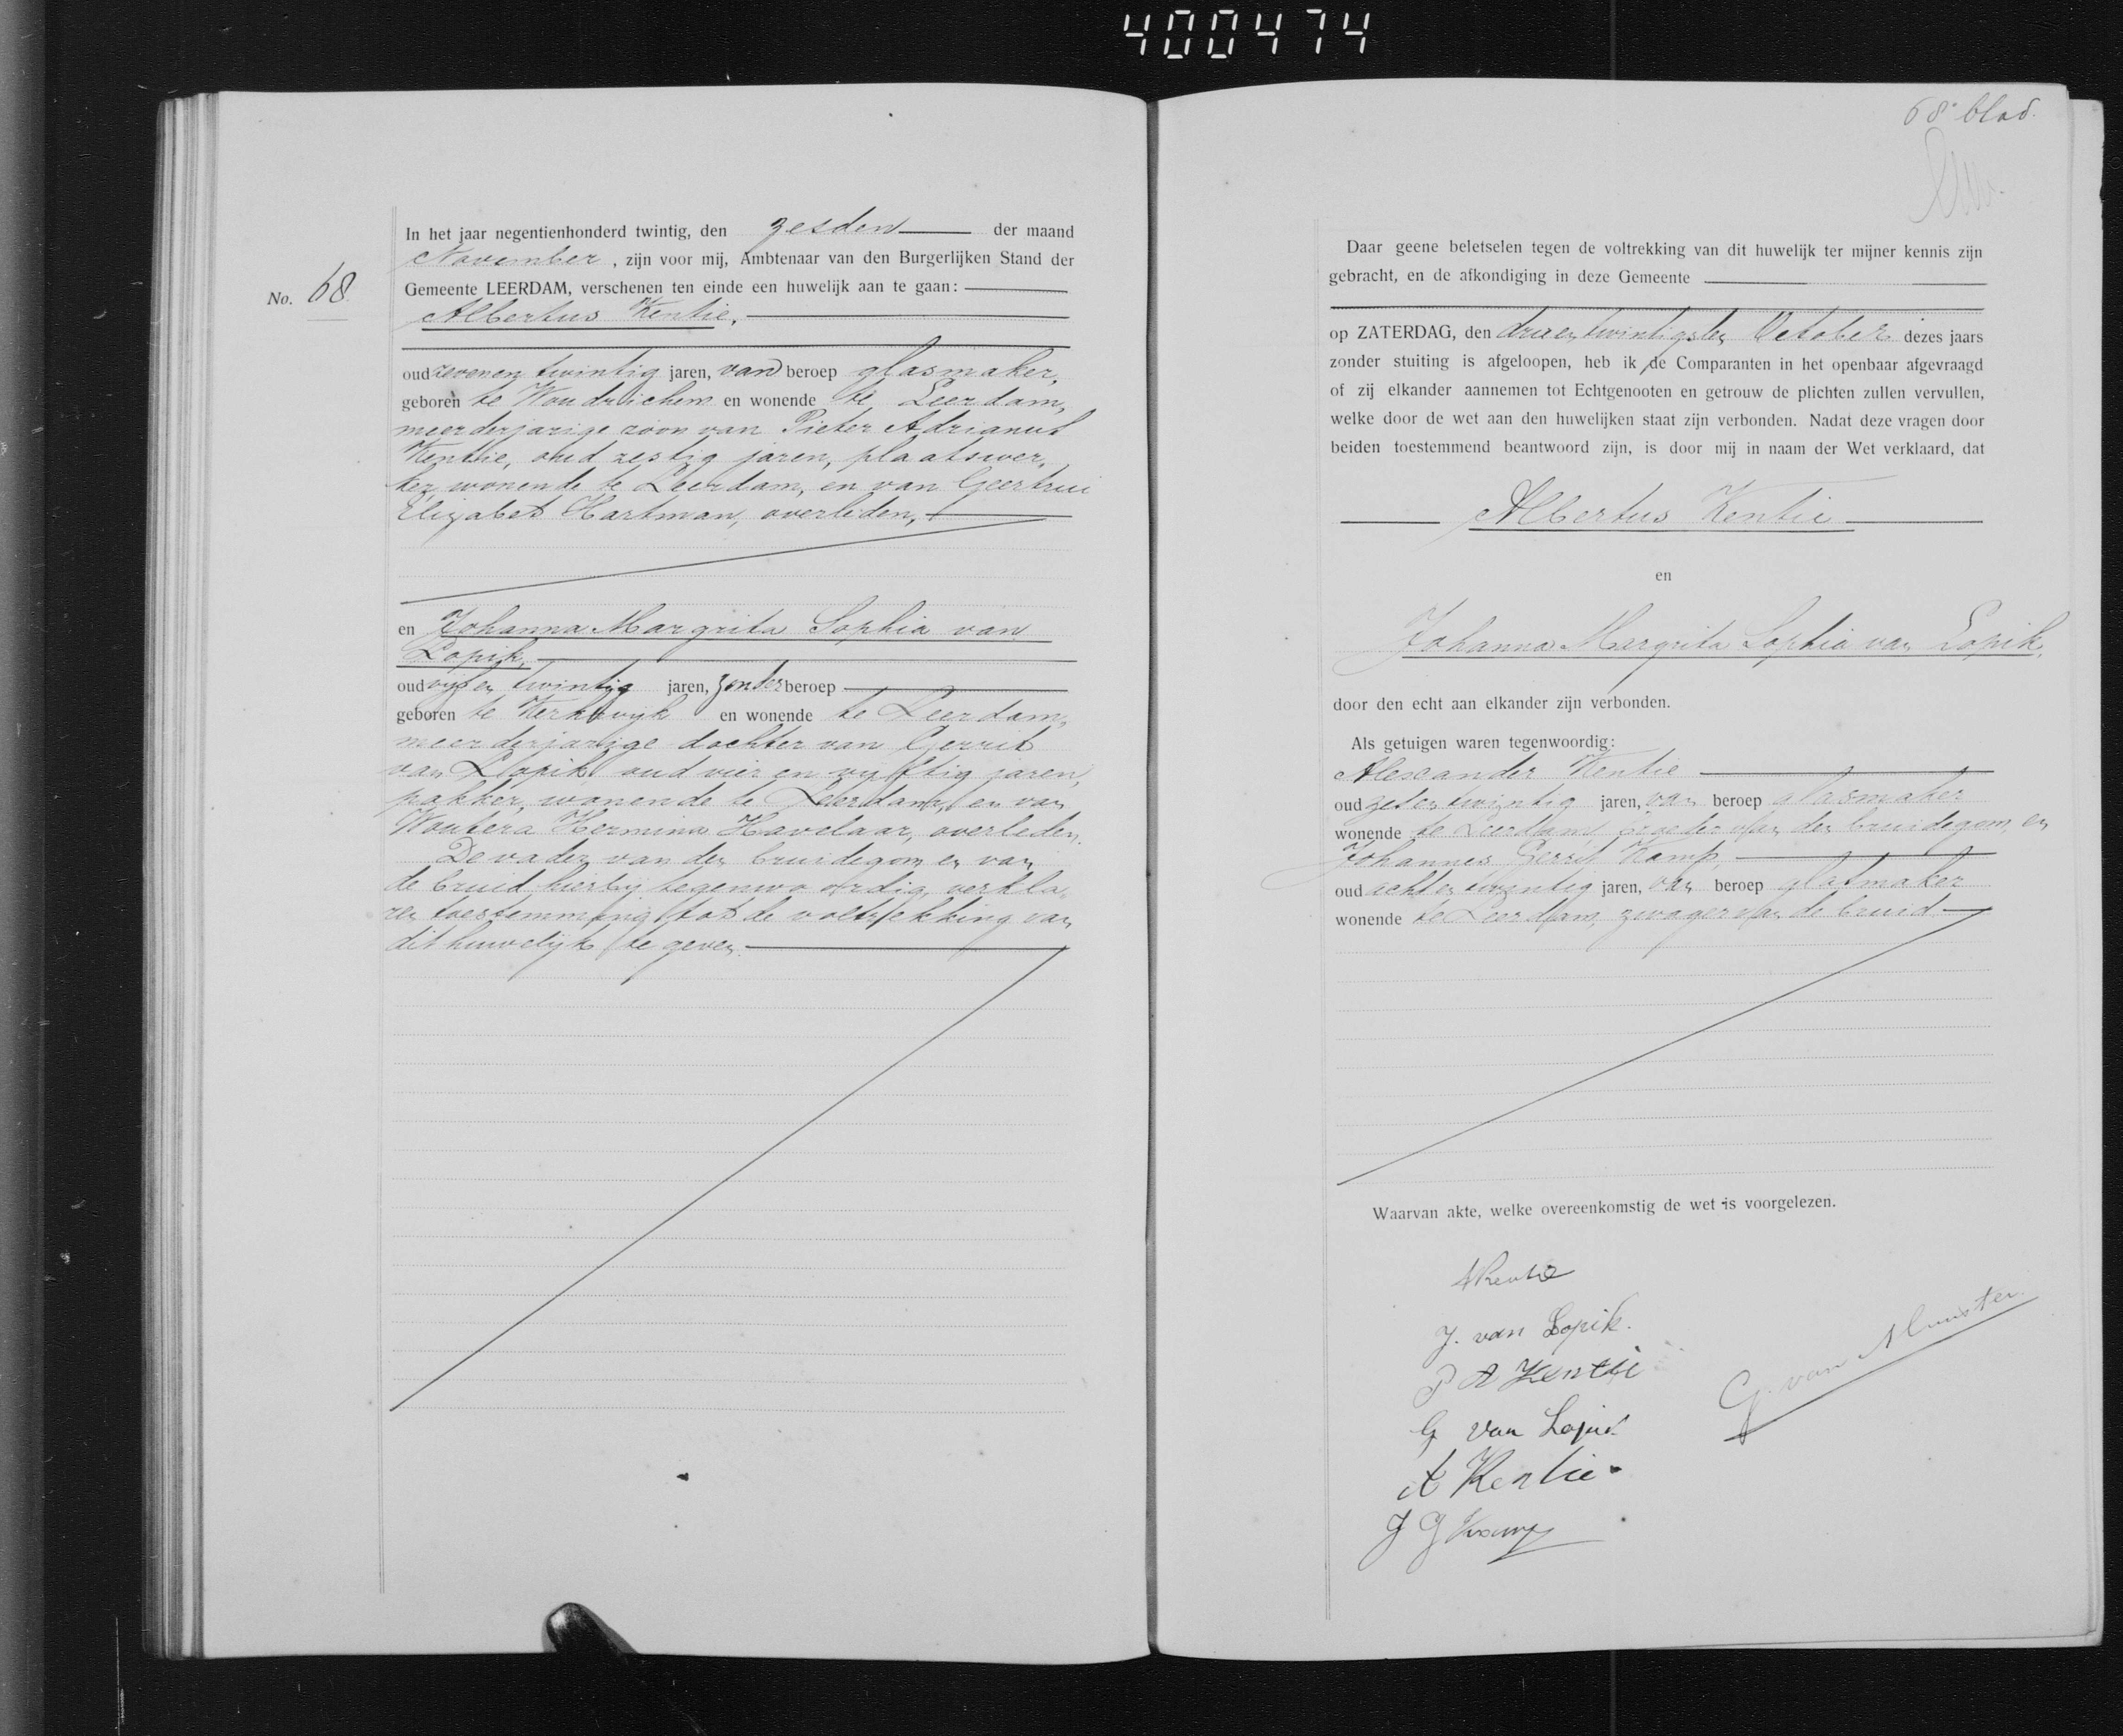 400474
68e blad.
No. 68
In het jaar negentienhonderd twintig, den zesden der maand
November, zijn voor mij, Ambtenaar van den Burgerlijken Stand der
Gemeente LEERDAM, verschenen ten einde een huwelijk aan te gaan:
Albertus Kentie,
oud zevenentwintig jaren, van beroep glasmaker,
geboren te Woudrichem en wonende te Leerdam,
meerderjarige zoon van Pieter Adrianus
Kentie, oud zestig jaren, plaatswer,
ker, wonende te Leerdam, en van Geertrui
Elizabet Hartman, overleden,
en Johanna Margrita Sophia van
Lopik,
oud vijfentwintig jaren, zonder beroep
geboren te Kerkwijk en wonende te Leerdam,
meerderjarige dochter van Gerrit
van Lopik oud vier en vijftig jaren,
pakker, wonende te Leerdam, en van
Woutera Hermina Havelaar, overleden.
De vader van den bruidegom en van
de bruid hierbij tegenwoordig, verkla-
ren toestemming tot de voltrekking van
dit huwelijk te geven.
Daar geene beletselen tegen de voltrekking van dit huwelijk ter mijner kennis zijn
gebracht, en de afkondiging in deze Gemeente
op ZATERDAG, den drieentwintigsten October dezes jaars
zonder stuiting is afgeloopen, heb ik de Comparanten in het openbaar afgevraagd
of zij elkander aannemen tot Echtgenooten en getrouw de plichten zullen vervullen,
welke door de wet aan den huwelijken staat zijn verbonden. Nadat deze vragen door
beiden toestemmend beantwoord zijn, is door mij in naam der Wet verklaard, dat
Albertus Kentie
en
Johanna Margrita Sophia van Lopik,
door den echt aan elkander zijn verbonden.
Als getuigen waren tegenwoordig:
Alexander Kentie
oud zesentwintig jaren, van beroep glasmaker
wonende te Leerdam, broeder van den bruidegom, en
Johannes Gerrit Kamp
oud achtentwintig jaren, van beroep glasmaker
wonende te Leerdam, zwager van de bruid
Waarvan akte, welke overeenkomstig de wet is voorgelezen.
A Kentie
J. van Lopik.
P A Kentie
G van Lopik
A Kentie
J G Kamp
G. van Munster.